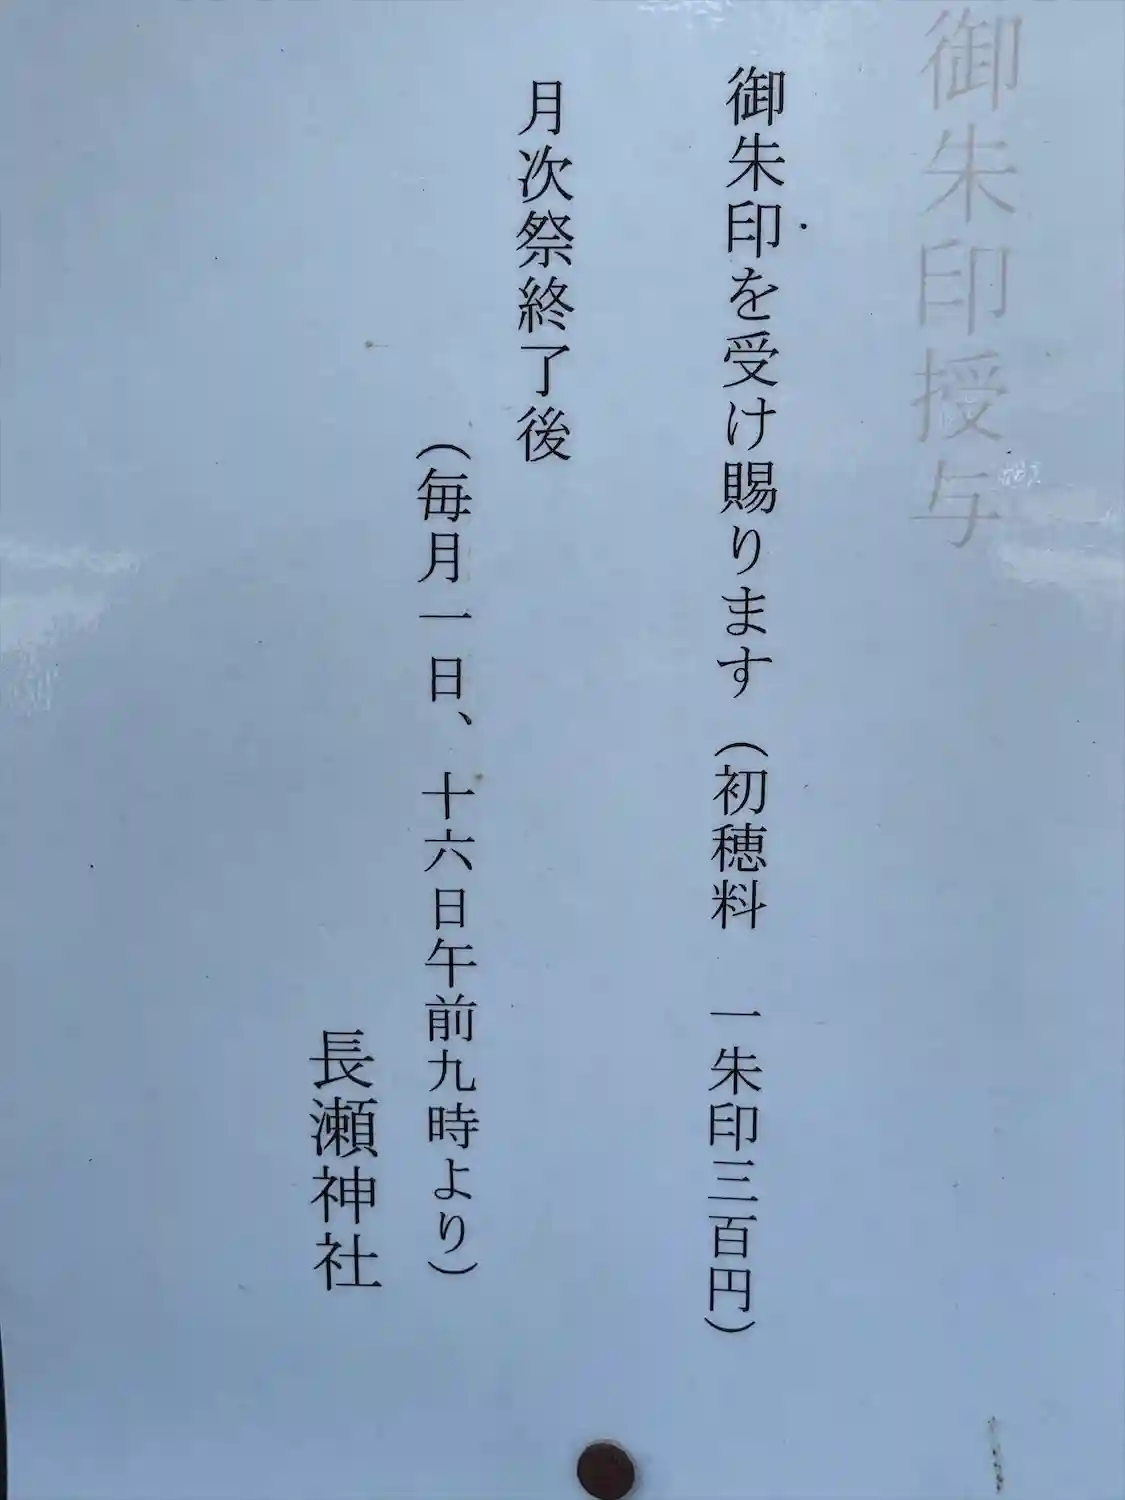 御朱印授与
御朱印を受け賜ります（初穂料　一朱印三百円）
月次祭終了後
（毎月一日、十六日午前九時より）
長瀬神社